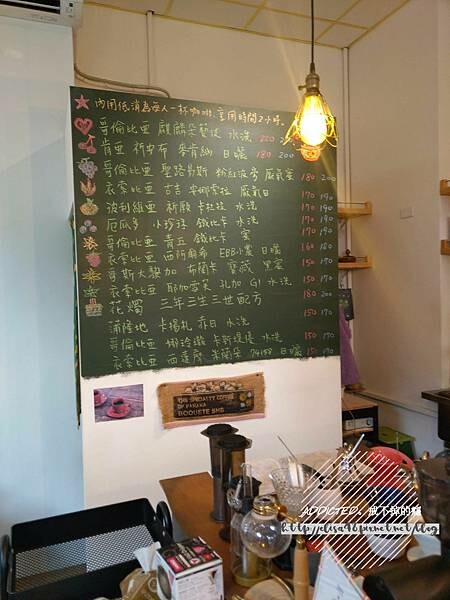 內用低消為每人一杯咖啡.享用時間2小時.
哥倫比亞 麒麟朵藝妓 水洗 200
肯亞 祈安布 麥肯納 日曬 180 200
哥倫比亞 聖路易斯 粉紅波旁 厭氧蜜 180 200
衣索比亞 古吉 安娜索拉 厭氧日 170 190
玻利維亞 祈願 卡杜拉 水洗 170 190
厄瓜多 小珍珠 鐵比卡 水洗 170 190
哥倫比亞 青五 鐵比卡 蜜 170 190
衣索比亞 西阿爾希 日曬 160 180
哥斯大黎加 布蘭卡 寶藏 黑蜜 170 190
衣索比亞 耶加雪菲 孔加 G1 水洗 150 170
花燭 三年三生三世配方 180 200
蒲隆地 卡揚札 水洗 150 170
哥倫比亞 娜玲瓏 卡斯提優 水洗 150 170
衣索比亞 西達摩 米蘭朵 74158 日曬 150 170
THE SPECIALTY COFFEE
OF PANAMA
BOQUETE SHB
ADDICTED。戒不掉的癮
http://elisa96.pixnet.net/blog